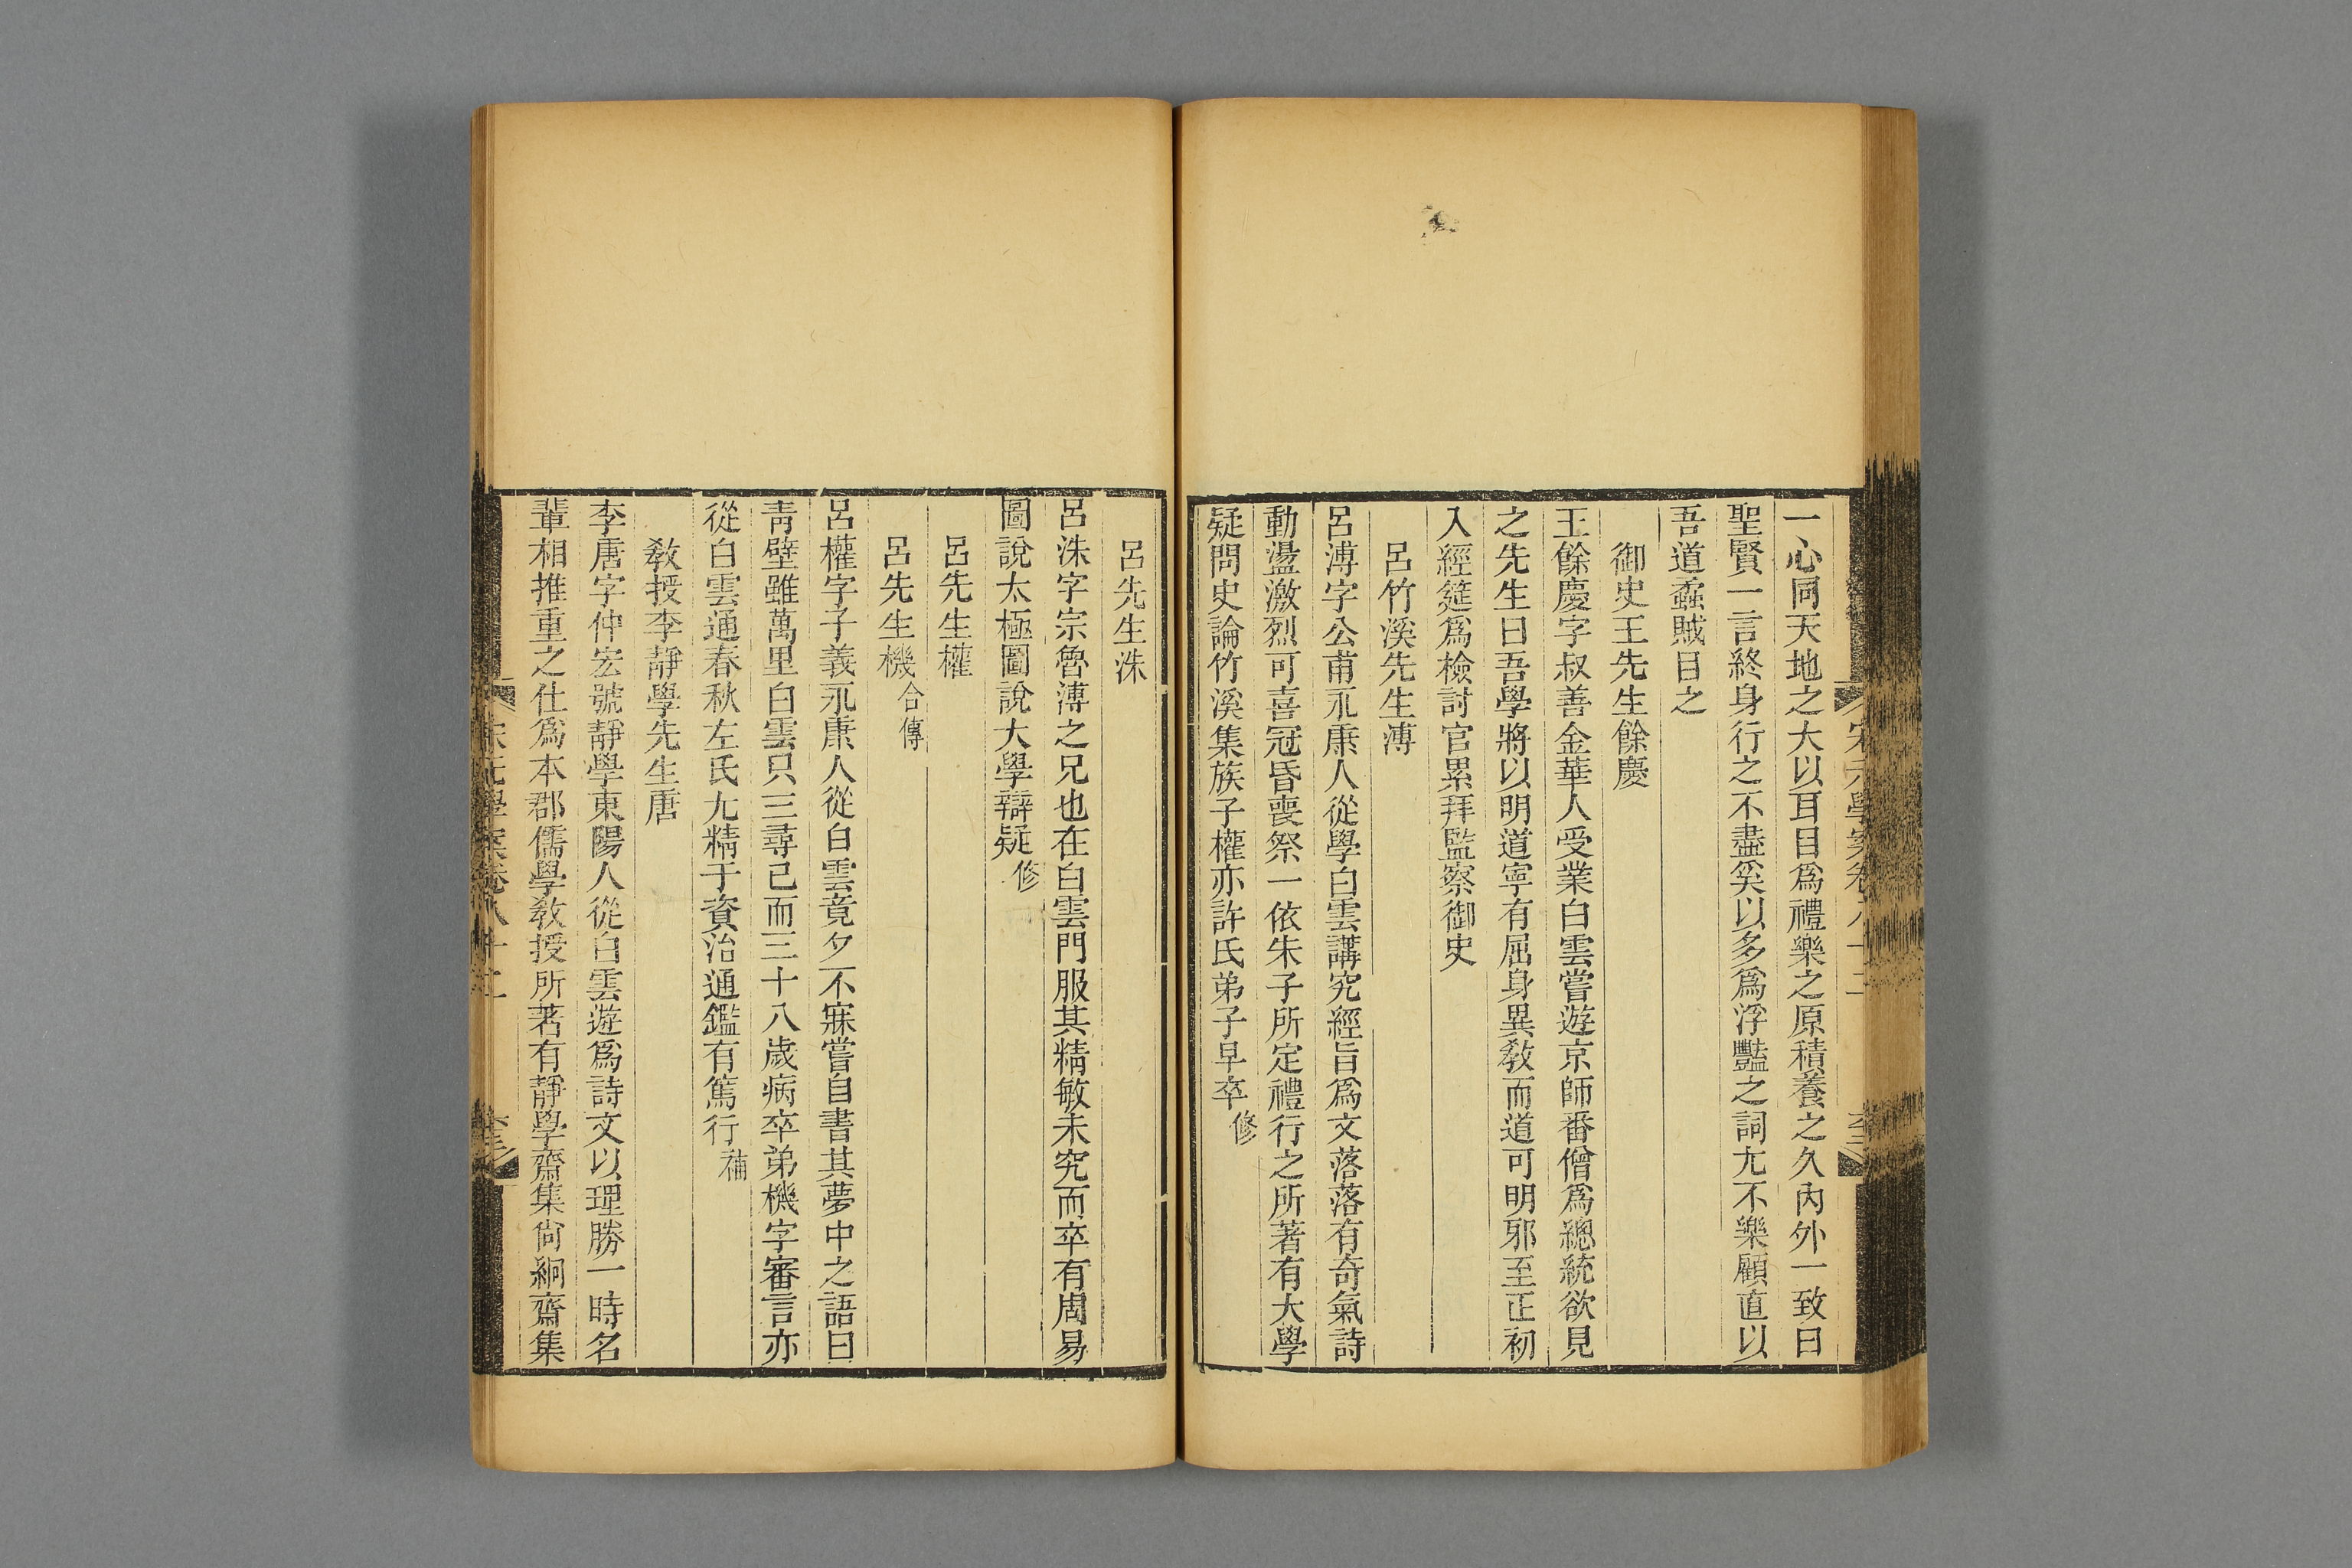 一心同天地之大以耳目爲禮樂之原積養之久內外一致曰
聖賢一言終身行之不盡矣以多爲浮豔之詞尤不樂顧直以
吾道蟊賊目之
御史王先生餘慶
王餘慶字叔善金華人受業白雲嘗遊京師番僧爲總統欲見
之先生曰吾學將以明道寧有屈身異敎而道可明邪至正初
入經筵爲檢討官累拜監察御史
呂竹溪先生溥
呂溥字公甫永康人從學白雲講究經旨爲文落落有奇氣詩
動盪激烈可喜冠昏喪祭一依朱子所定禮行之所著有大學
疑問史論竹溪集族子權亦許氏弟子早卒修
呂先生洙
呂洙字宗魯溥之兄也在白雲門服其精敏未究而卒有周易
圖說太極圖說大學辯疑修
呂先生權
呂先生機合傳
呂權字子義永康人從白雲竟夕不寐嘗自書其夢中之語曰
靑壁雖萬里白雲只三尋已而三十八歲病卒弟機字審言亦
從白雲通春秋左氏尤精于資治通鑑有篤行補
敎授李靜學先生唐
李唐字仲宏號靜學東陽人從白雲遊爲詩文以理勝一時名
輩相推重之仕爲本郡儒學敎授所著有靜學齋集尙絅齋集
宋元學案卷八十二